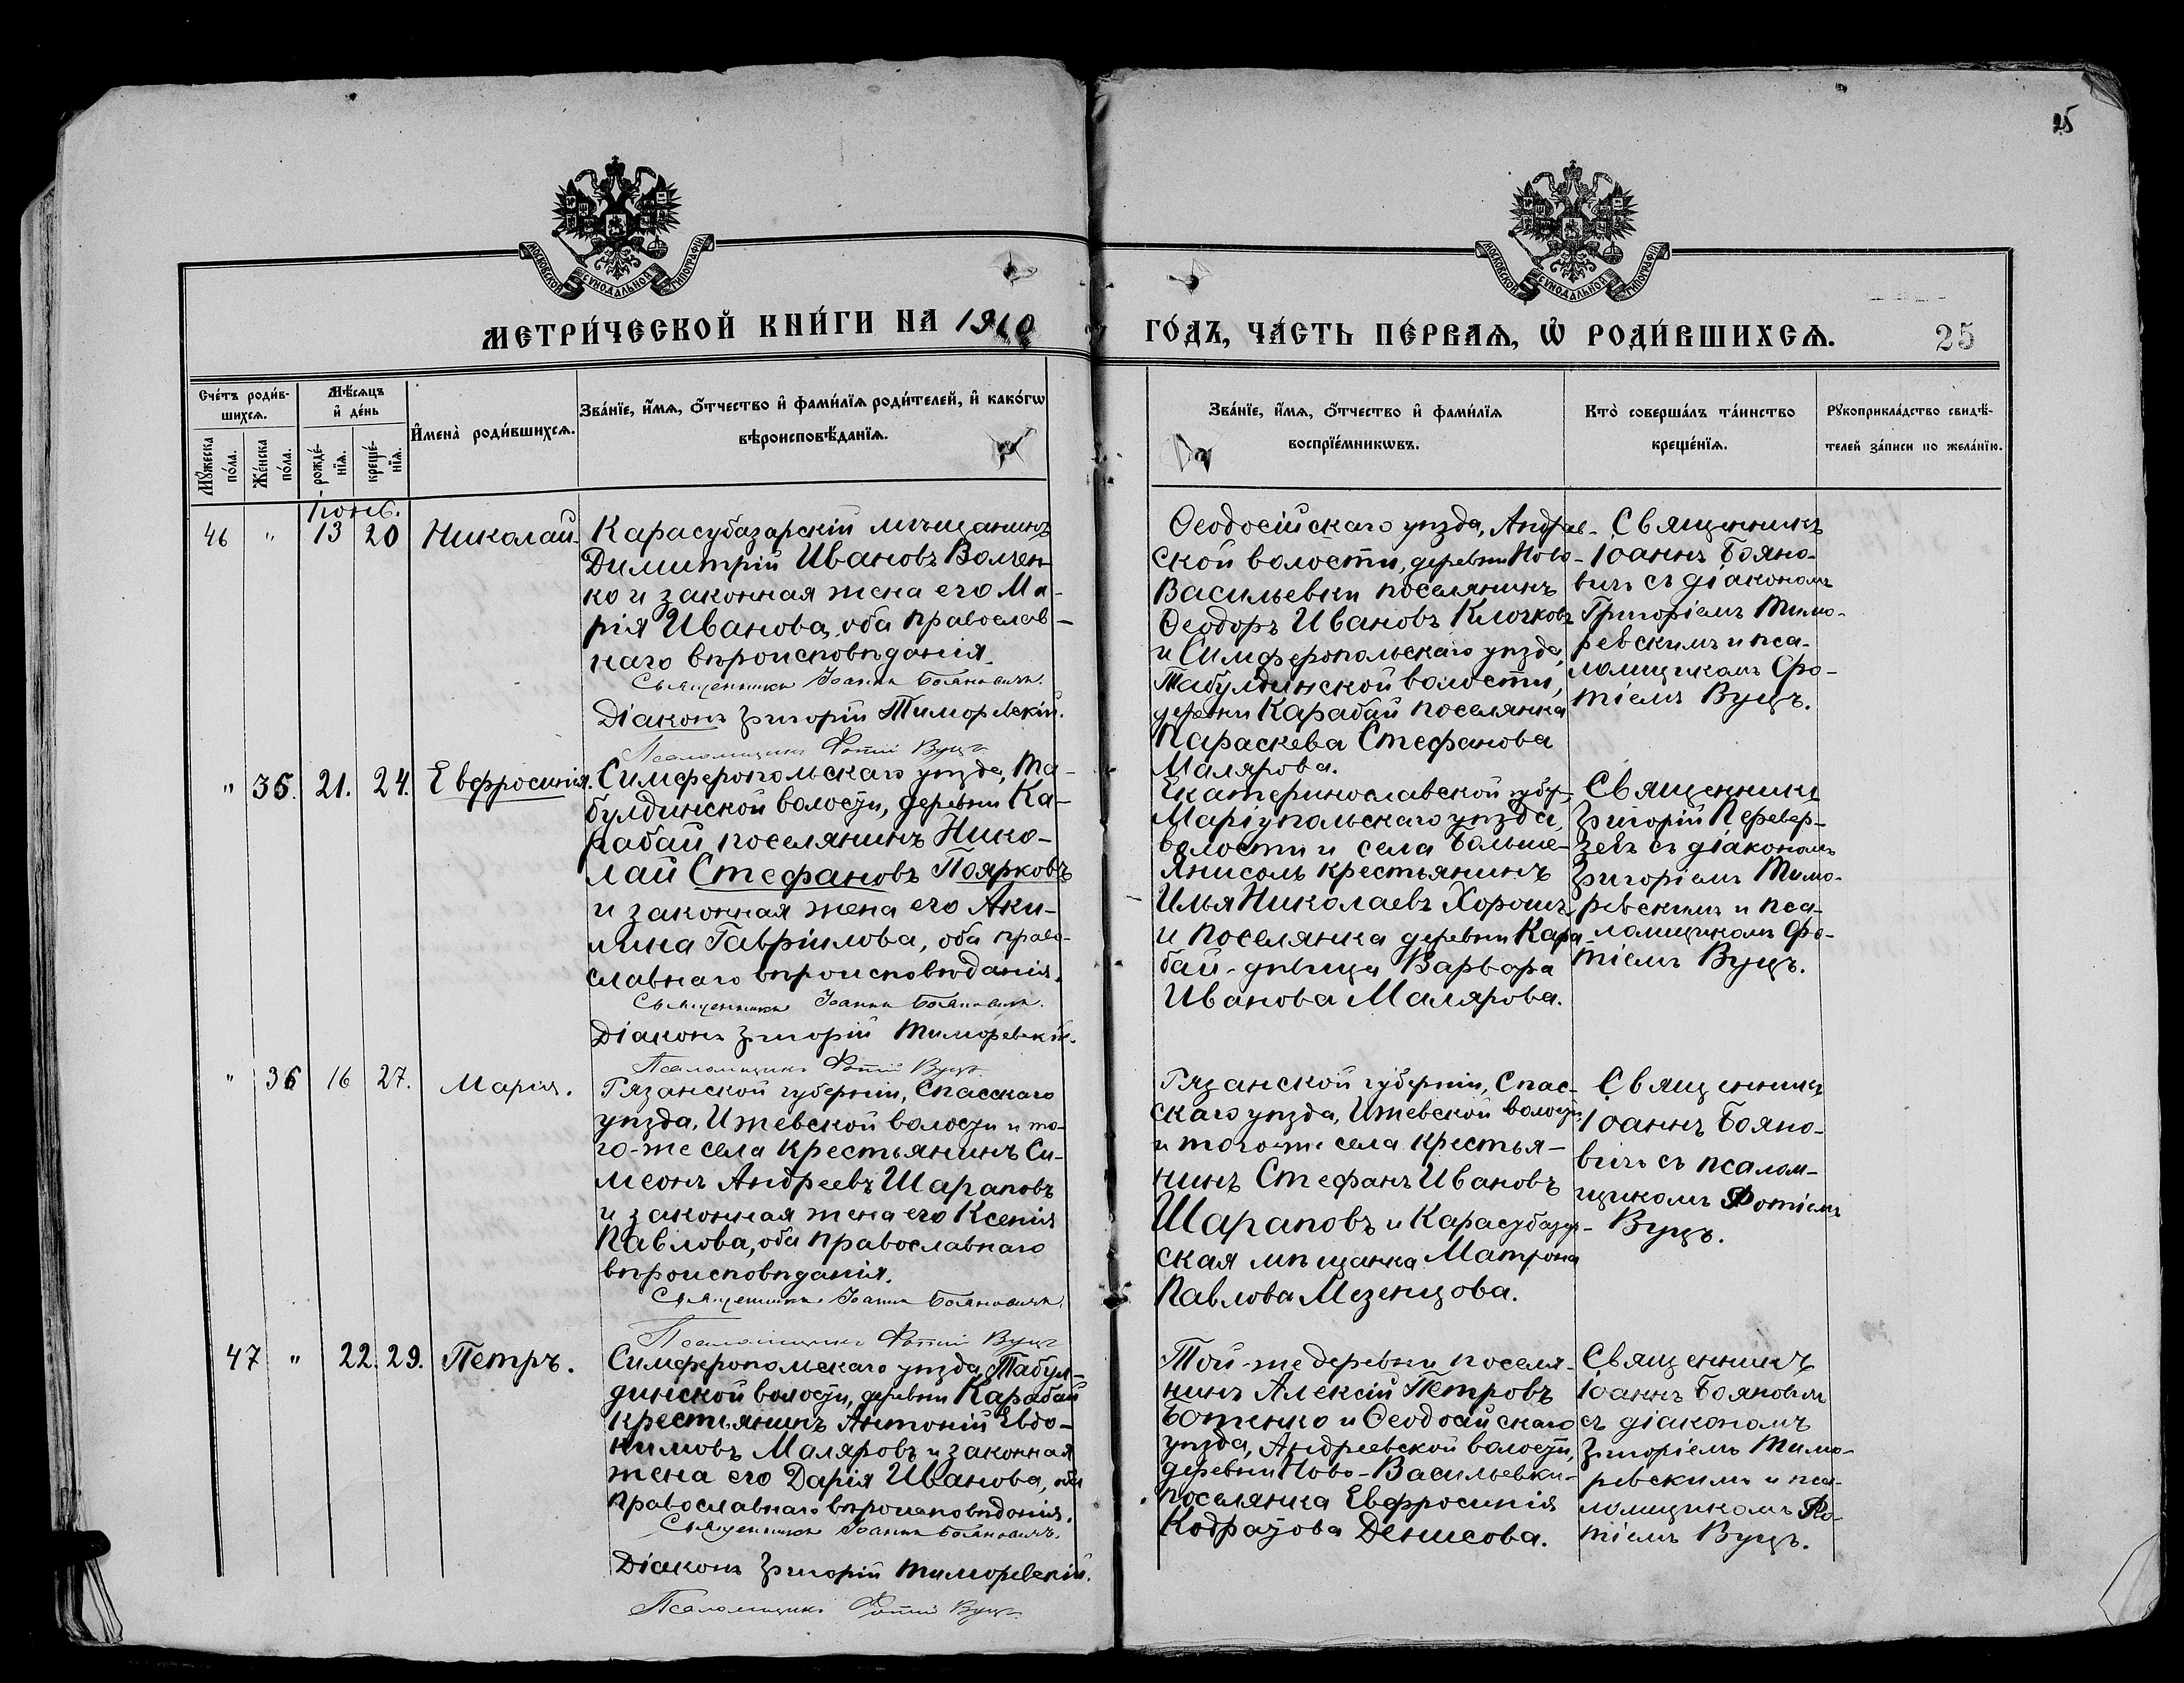 25
МОСКОВСКОЙ СѴНОДАЛЬНОЙ ТИПОГРАФІИ
МОСКОВСКОЙ СѴНОДАЛЬНОЙ ТИПОГРАФІИ
МЕТРИ́ЧЕСКОЙ КНИ́ГИ НА 1910
ГО́ДЪ, ЧА́СТЬ ПЕ́РВАѦ, Ѡ РОДИ́ВШИХСѦ.
25
Сче́тъ роди́в-
шихсѧ.
Мꙋ́жеска по́ла.
Же́нска по́ла.
Мѣ́сѧцъ
и҆ де́нь
рожде́-
нїѧ.
креще́-
нїѧ.
И҆мена̀ роди́вшихсѧ.
Зва́нїе, и҆́мѧ, ѻ҆́тчество и҆ фами́лїѧ роди́телей, и҆ како́гѡ
вѣроисповѣ́данїѧ.
Зва́нїе, и҆́мѧ, ѻ҆́тчество и҆ фами́лїѧ
воспрїе́мникѡвъ.
Кто̀ соверша́лъ та́инство
креще́нїѧ.
Рꙋкоприкла́дство свидѣ́-
телей за́писи по жела́нїю.
46 " 13 20 Николай
Карасубазарскій мѣщанинъ
Димитрій Ивановъ Волчен-
ко и законная жена его Ма-
рія Иванова, оба православ-
наго вѣроисповѣданія.
Священникъ Іоаннъ Бояновичъ.
Діаконъ Григорій Тиморевскій.
Псаломщикъ Фотій Вуцъ
Ѳеодосійскаго уѣзда, Андрее-
ской волости, деревни Ново-
Васильевки поселянинъ
Ѳеодоръ Ивановъ Клочковъ
и Симферопольскаго уѣзда,
Табулдинской волости,
деревни Карабай поселянка
Параскева Стефанова
Малярова.
Священникъ
Іоаннъ Бояно-
вичъ съ діакономъ
Григоріемъ Тимо-
ревскимъ и пса-
ломщикомъ Фо-
тіемъ Вуцъ.
" 35. 21. 24. Евфросинія.
Симферопольскаго уѣзда, Та-
булдинской волости, деревни Ка-
рабай поселянинъ Нико-
лай Стефановъ Поярковъ
и законная жена его Аки-
лина Гавріилова, оба право-
славнаго вѣроисповѣданія.
Священникъ Іоаннъ Бояновичъ.
Діаконъ Григорій Тиморевскій.
Псаломщикъ Фотій Вуцъ
Екатеринославской губ.,
Маріупольскаго уѣзда,
волости и села Больше-
Янисоль крестьянинъ
Илья Николаевъ Хорошъ
и поселянка деревни Кара-
бай-дѣвица Варвара
Иванова Малярова.
Священникъ
Григорій Перевер-
зевъ съ діакономъ
Григоріемъ Тимо-
ревскимъ и пса-
ломщикомъ Фо-
тіемъ Вуцъ.
" 36 16 27. Марія.
Рязанской губерніи, Спасскаго
уѣзда, Ижевской волости и то-
го-же села крестьянинъ Си-
меонъ Андреевъ Шараповъ
и законная жена его Ксенія
Павлова, оба православнаго
вѣроисповѣданія.
Священникъ Іоаннъ Бояновичъ.
Псаломщикъ Фотій Вуцъ
Рязанской губерніи, Спас-
скаго уѣзда, Ижевской волости
и того-же села крестья-
нинъ Стефанъ Ивановъ
Шараповъ и Карасубазар-
ская мѣщанка Матрона
Павлова Мезенцова.
Священникъ
Іоаннъ Бояно-
вичъ съ псалом-
щикомъ Фотіемъ
Вуцъ.
47 " 22. 29. Петръ.
Симферопольскаго уѣзда, Табул-
динской волости, деревни Карабай
крестьянинъ Антоній Евдо-
кимовъ Маляровъ и законная
жена его Дарія Иванова, оба
православнаго вѣроисповѣданія.
Священникъ Іоаннъ Бояновичъ.
Діаконъ Григорій Тиморевскій.
Псаломщикъ Фотій Вуцъ
Той-же деревни поселя-
нинъ Алексій Петровъ
Ботенко и Ѳеодосійскаго
уѣзда, Андреевской волости,
деревни Ново-Васильевки
поселянка Евфросинія
Кодратова Денисова.
Священникъ
Іоаннъ Бояновичъ
съ діакономъ
Григоріемъ Тимо-
ревскимъ и пса-
ломщикомъ Фо-
тіемъ Вуцъ.